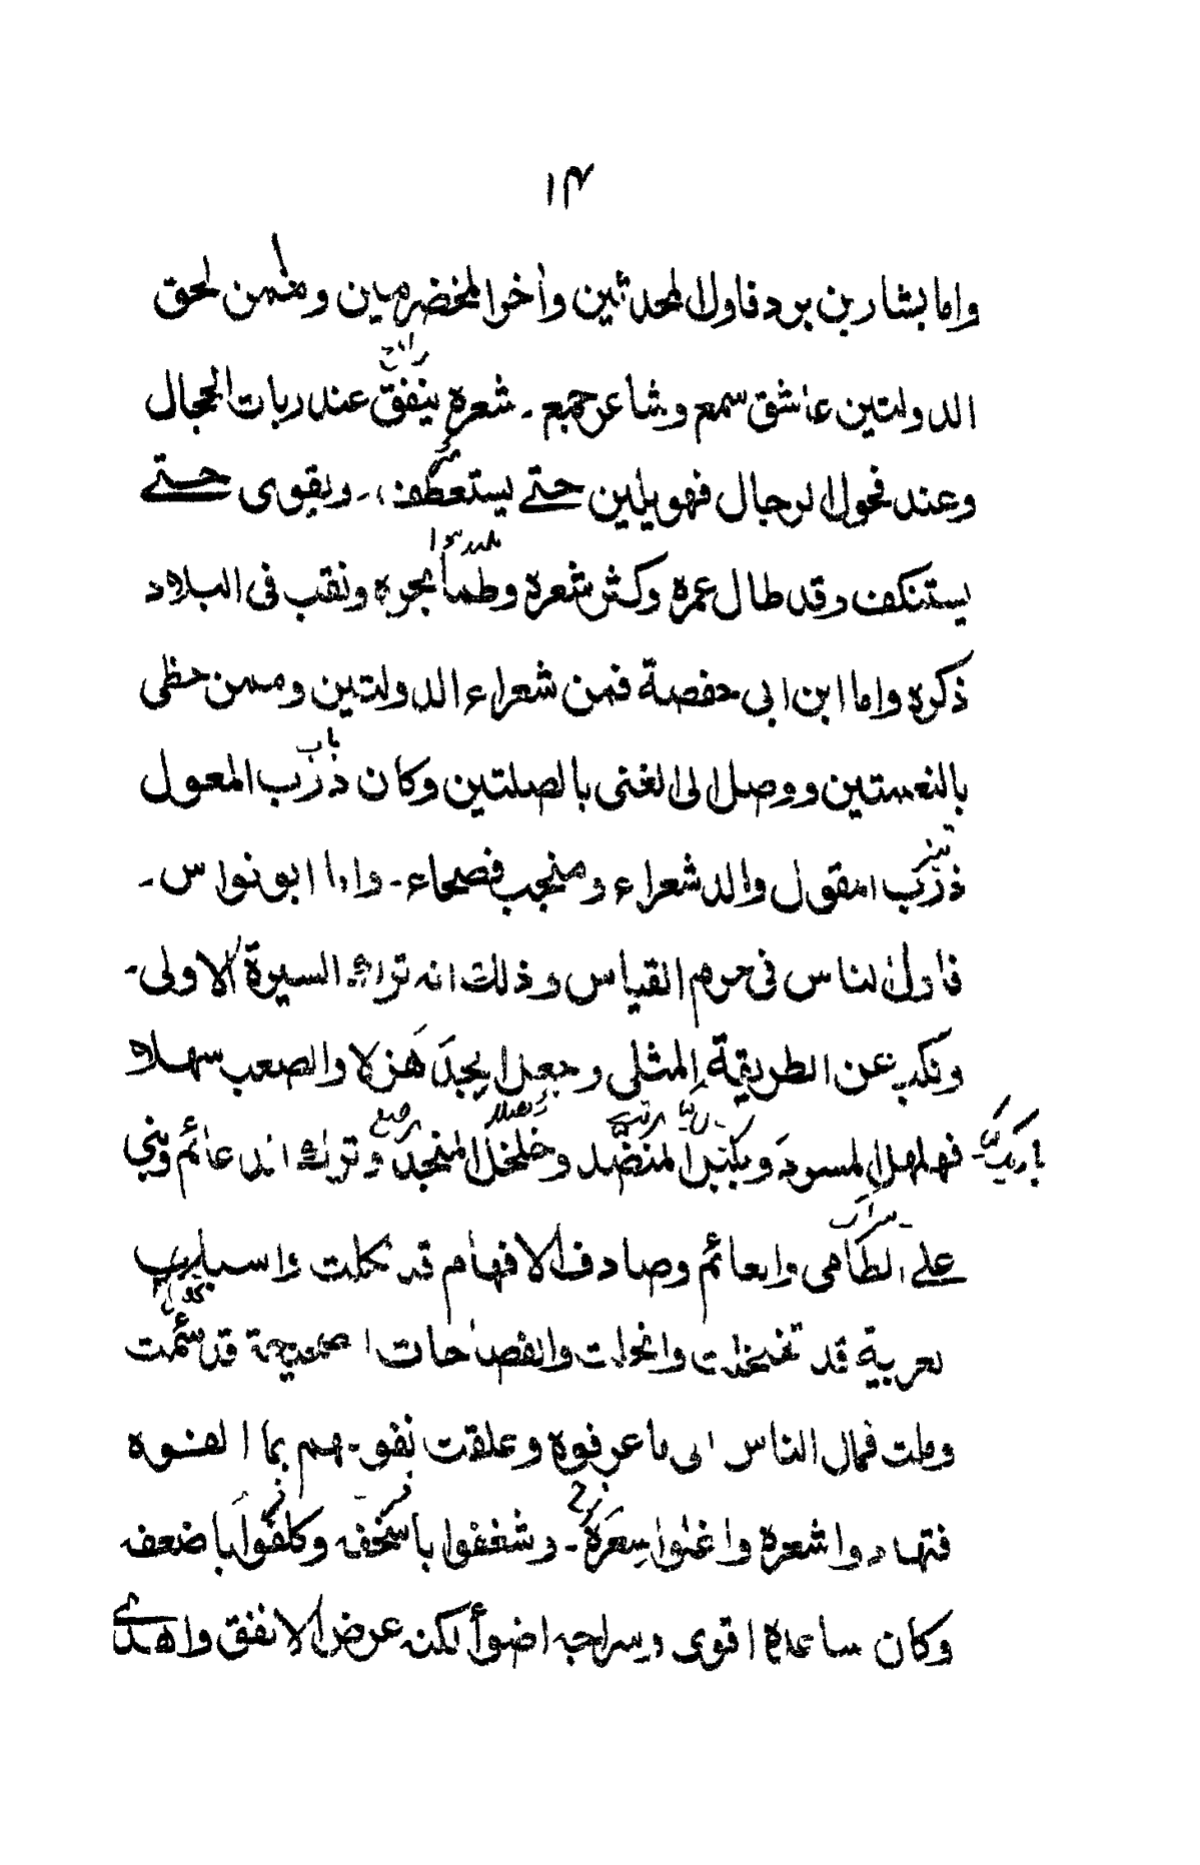 ١٤
واما بشار بن برد فاول المحدثين واٰخر المخضرمين وممن لحق
الدولتين عاشق سمع وشاعر جمع ـ شعره ينفق عند ربات الحجال
وعند فحول الرجال فهو يلين حتے يستعطف ـ ويقوى حتے
يستنكف وقد طال عمره وكثر شعره وطما بحره ونقب فى البلاد
ذكره واما ابن ابى حفصة فمن شعراء الدولتين وممن حظى
بالنعمتين ووصل الى الغنى بالصلتين وكان ذرب المعول
ذرب المقول والد شعراء ومنجب فصحاء ـ واما ابو نواس ـ
فاول الناس فى خرم القياس وذلك انه ترك السيرة الاولى ـ
ونكب عن الطريقة المثلى وجعل الجد هزلا والصعب سهلا
فهلهل المسرد و المنضد وخلخل المنجد وترك الدعائم وبنى
علے الطامى والعائم وصادف الافهام قد نكلت واسباب
لعربية قد تخلخلت وانحلت والفصاحات الصحيحة قد سئمت
وملت فمال الناس الى ما عرفوه وعلقت نفوسهم بما الفوه
فتهادوا شعره واغلوا سعره ـ وشغفوا باسخفه وكلفوا باضعفه
وكان ساعده اقوى وسراجه اضوأ لكنه عرض الانفق واهدى